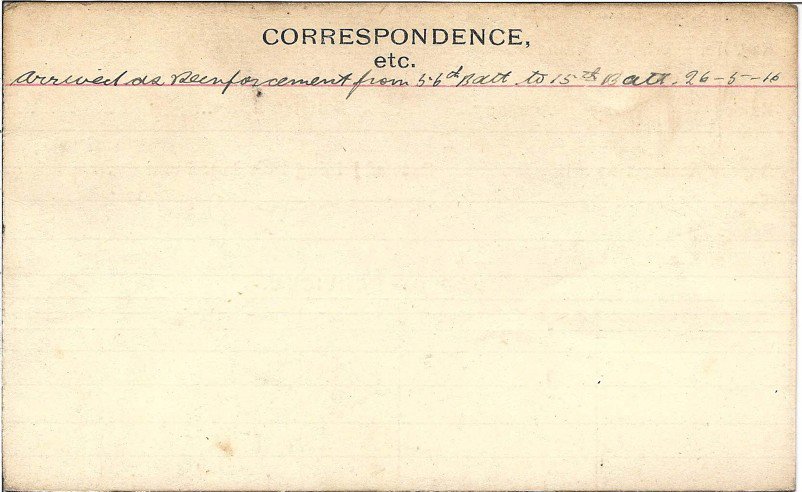 CORRESPONDENCE,
etc.
Arrived as Reinforcement from 56th Batt. to 15th Batt. 26-5-16